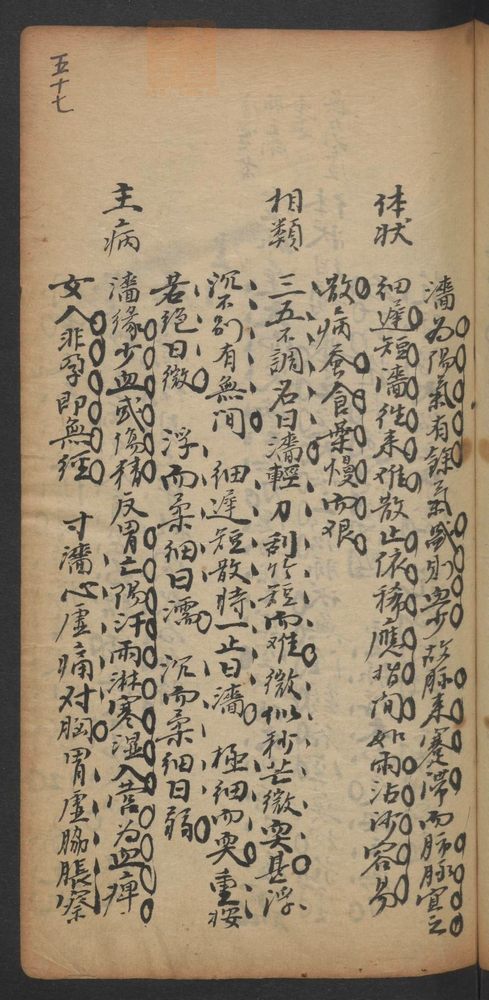 五十七
濇為陽氣有餘氣盛則血少故脉來蹇滯而肺脉宜之
体状
細遲短濇徃来难散止依稀應指间如雨沾沙容易
散病蚕食葉慢而艰
相類
三五不調名曰濇輕刀刮竹短而难微似秒芒微耎甚浮
沉不别有無间　細遲短散時一止曰濇　極細而耎重按
若绝曰微　浮而柔细曰濡　沉而柔细曰弱
主病
濇缘少血或傷精反胃亡陽汗雨淋寒湿入营為血痺
女人非孕即無经　寸濇心虚痛对胸胃虚脇脹察